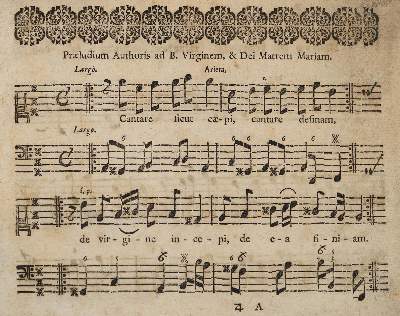 Præludium Authoris ad B. Virginem, & Dei Matrem Mariam.
Largò. Arietta,
Cantare ſicut cæpi, cantare deſinam,
Largo.
de vir-gi-ne in-ce-pi, de e-a fi-ni-am.
A